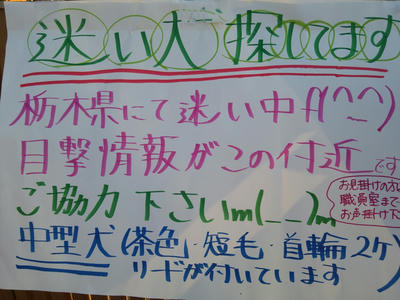 迷い犬探してます
栃木県にて迷い中!(^^)
目撃情報がこの付近です
ご協力下さいm(__)m
お見掛けの方
職員室まで
お声掛け下
中型犬(茶色・短毛・首輪2ケ)
リードが付いています